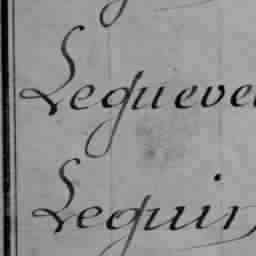 Lequeve
Lequin